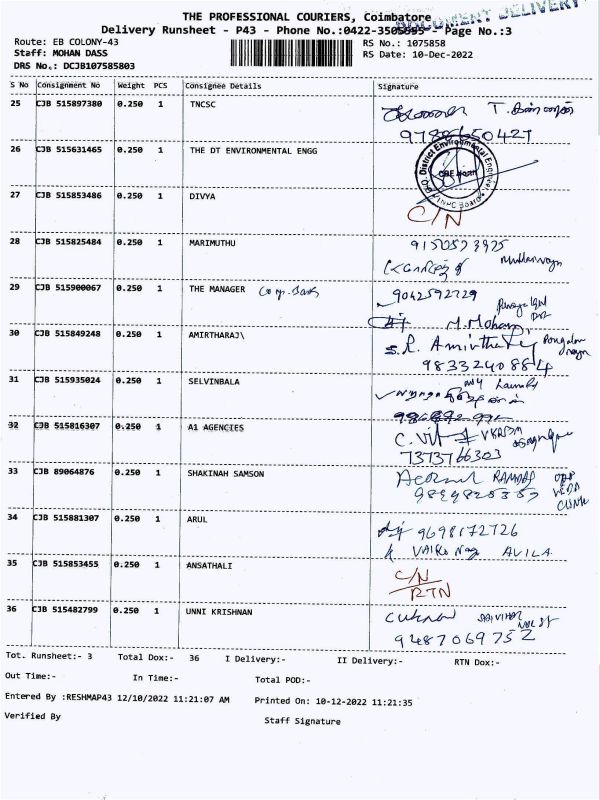 THE PROFESSIONAL COURIERS, Coimbatore
DOCUMENT DELIVERY
Delivery Runsheet - P43 - Phone No.:0422-3505595 - Page No.:3
Route: EB COLONY-43
RS No.: 1075858
Staff: MOHAN DASS
RS Date: 10-Dec-2022
DRS No.: DCJB107585803
S No Consignment No Weight PCS Consignee Details Signature
25 CJB 515897380 0.250 1 TNCSC
9788650427
26 CJB 515631465 0.250 1 THE DT ENVIRONMENTAL ENGG
District Environmental Engineer
CBE North
27 CJB 515853486 0.250 1 DIVYA
C/N
28 CJB 515825484 0.250 1 MARIMUTHU
29 CJB 515900067 0.250 1 THE MANAGER
9042592729
M.Mohan
30 CJB 515849248 0.250 1 AMIRTHARAJ\
S.R. Amirtharaj
9833240884
31 CJB 515935024 0.250 1 SELVINBALA
32 CJB 515816307 0.250 1 A1 AGENCIES
7373766303
33 CJB 89064876 0.250 1 SHAKINAH SAMSON
34 CJB 515881307 0.250 1 ARUL
9698172726
AVILA
35 CJB 515853455 0.250 1 ANSATHALI
C/N
RTN
36 CJB 515482799 0.250 1 UNNI KRISHNAN
9487069752
Tot. Runsheet:- 3 Total Dox:- 36 I Delivery:- II Delivery:- RTN Dox:-
Out Time:- In Time:- Total POD:-
Entered By :RESHMAP43 12/10/2022 11:21:07 AM Printed On: 10-12-2022 11:21:35
Verified By Staff Signature